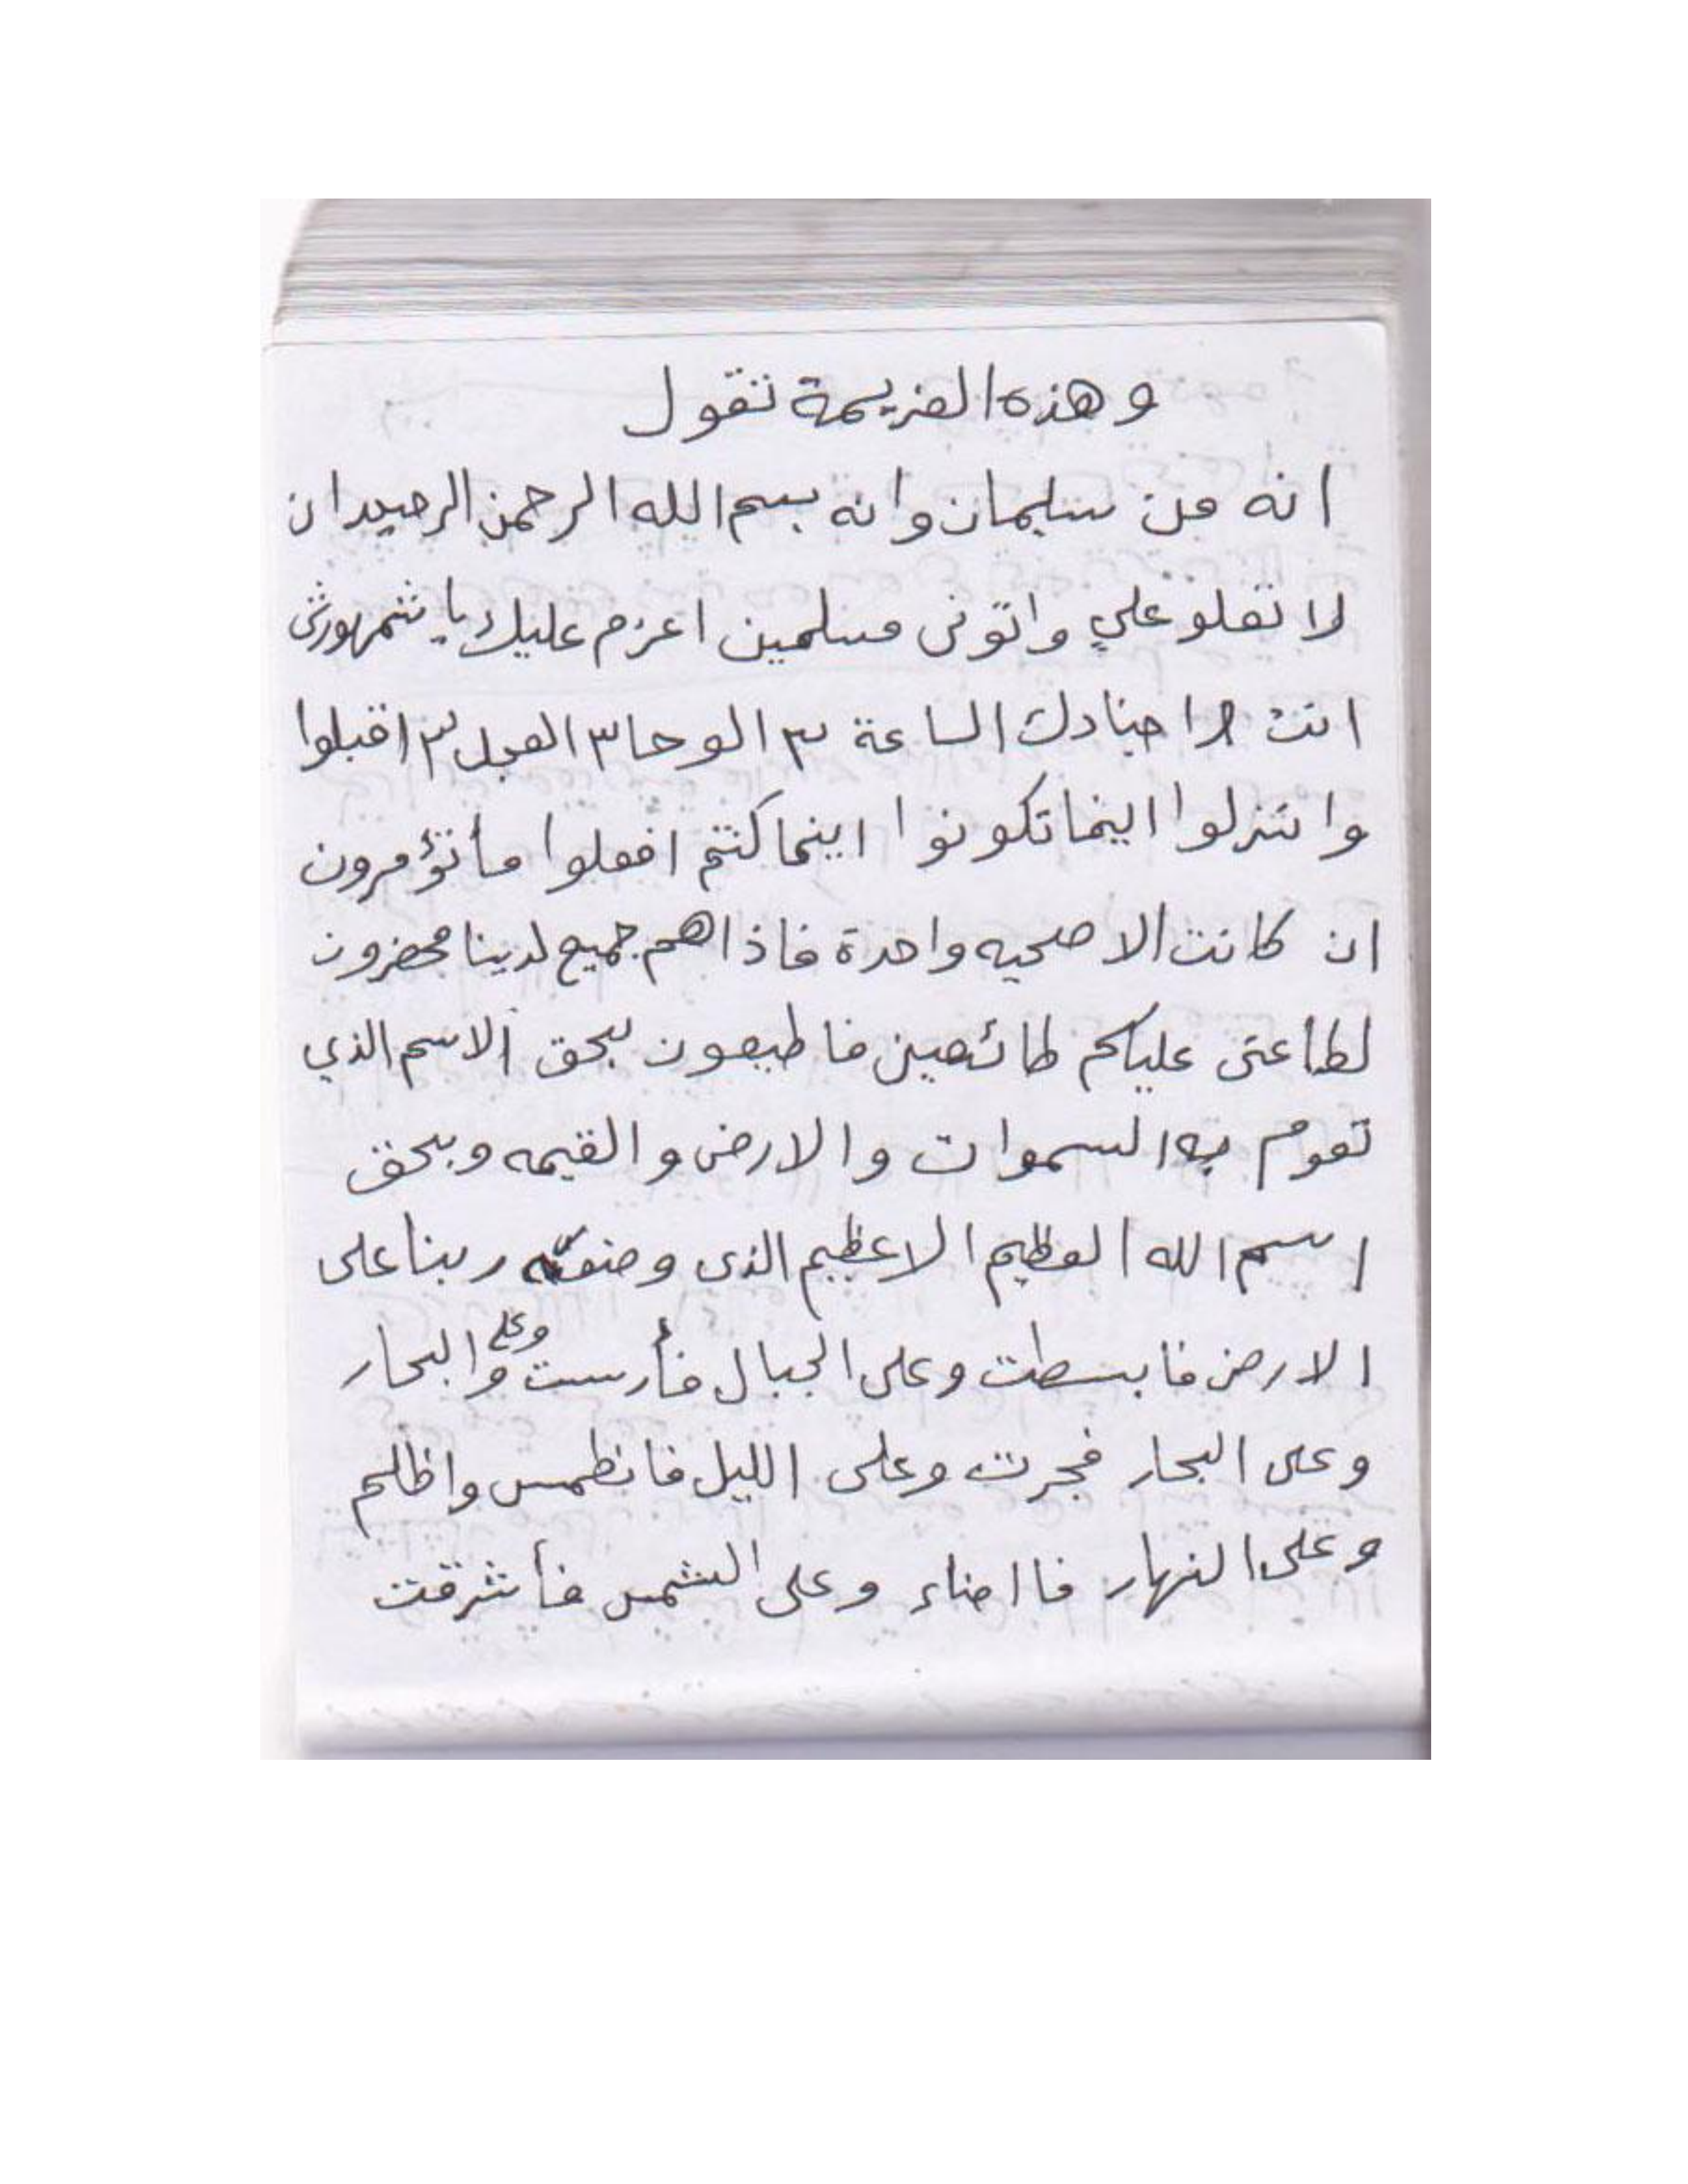 وهذه العزيمة تقول
انه من سليمان وانه بسم الله الرحمن الرحيم ان
لا تعلو علي واتونى مسلمين اعزم عليك يا شمهورش
انت واجنادك الساعة ٣ الوحا ٣ العجل ٣ اقبلوا
وا تنزلوا اينما تكونوا اينما كنتم افعلوا مأ تؤمرون
ان كانت الا صحيه واحدة فاذا هم جميع لدينا محضرون
لطاعتى عليكم طائعين فاطيعون بحق الاسم الذي
تقوم به السموات والارض والقيمه وبحق
اسم الله العظيم الاعظيم الذى وضعته ربنا على
الارض فابسطت وعلى الجبال فأرست وعلى والبحار
وعلى البحار فجرت وعلى الليل فانطمس واظلم
وعلى النهار فااضاء وعلى الشمس فأشرقت